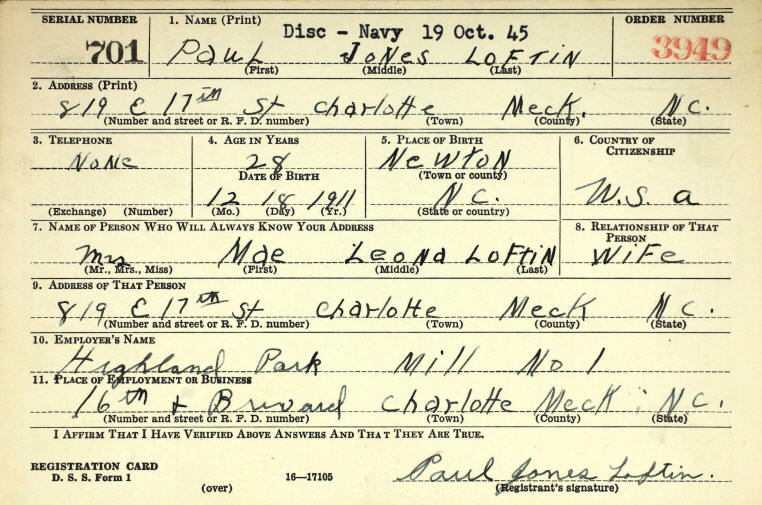 SERIAL NUMBER 1. NAME (Print) Disc - Navy 19 Oct. 45 ORDER NUMBER
701 PAUL JONES LOFTIN 3949
(First) (Middle) (Last)
2. ADDRESS (Print)
819 E 17th St Charlotte Meck. N C.
(Number and street or R. F. D. number) (Town) (County) (State)
3. TELEPHONE 4. AGE IN YEARS 5. PLACE OF BIRTH 6. COUNTRY OF CITIZENSHIP
NONE 28 NewTON
DATE OF BIRTH (Town or county)
12 18 1911 N C. U. S. a
(Exchange) (Number) (Mo.) (Day) (Yr.) (State or country)
7. NAME OF PERSON WHO WILL ALWAYS KNOW YOUR ADDRESS 8. RELATIONSHIP OF THAT PERSON
Mrs Mae Leona LOFTIN WiFe
(Mr., Mrs., Miss) (First) (Middle) (Last)
9. ADDRESS OF THAT PERSON
819 E 17th St Charlotte Meck N C.
(Number and street or R. F. D. number) (Town) (County) (State)
10. EMPLOYER'S NAME
Highland Park Mill No 1
11. PLACE OF EMPLOYMENT OR BUSINESS
16th + Brivard Charlotte Meck. N.C.
(Number and street or R. F. D. number) (Town) (County) (State)
I AFFIRM THAT I HAVE VERIFIED ABOVE ANSWERS AND THAT THEY ARE TRUE.
REGISTRATION CARD
D. S. S. Form 1 16—17105 Paul Jones Loftin.
(over) (Registrant's signature)